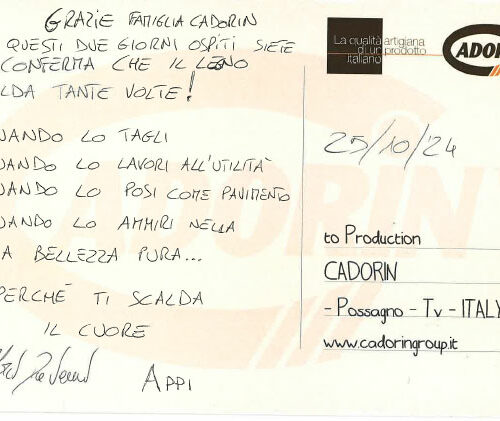 GRAZIE FAMIGLIA CADORIN
QUESTI DUE GIORNI OSPITI SIETE
CONFERMA CHE IL LEGNO
LDA TANTE VOLTE!
UANDO LO TAGLI
UANDO LO LAVORI ALL'UTILITÀ
UANDO LO POSI COME PAVIMENTO
UANDO LO AMMIRI NELLA
A BELLEZZA PURA...
PERCHÉ TI SCALDA
IL CUORE
APPI
La qualità artigiana
di un prodotto
italiano
ADOR
25/10/24
to Production
CADORIN
- Possagno - Tv - ITALY
www.cadoringroup.it
ADORIN